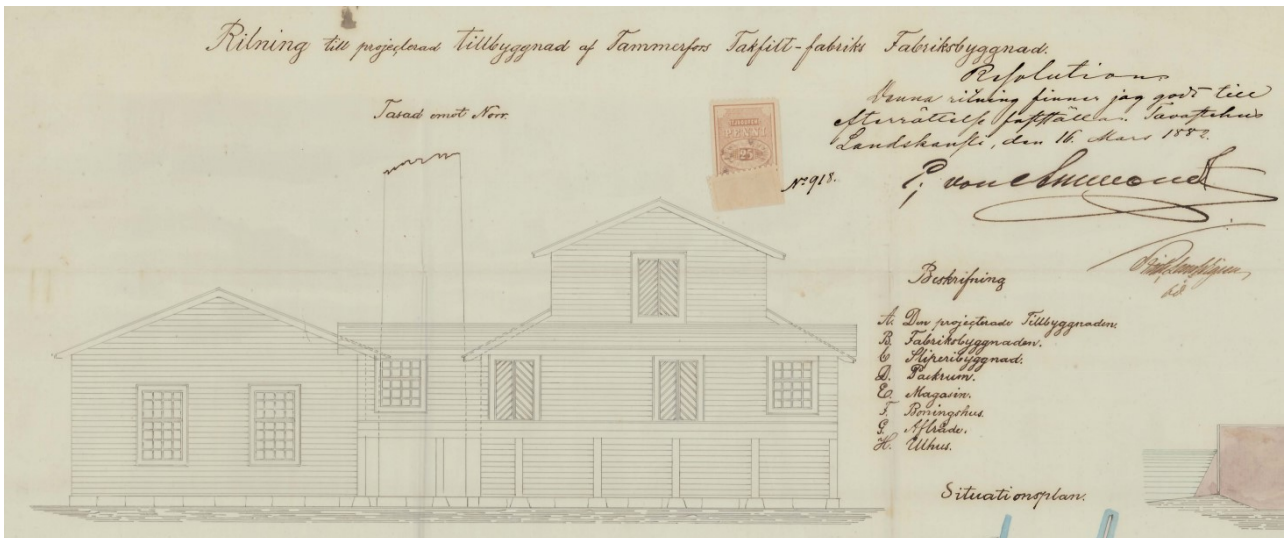 Ritning till projecterad tillbyggnad af Tammerfors Takfilt-fabriks Fabriksbyggnad.
Fasad emot Norr.
PENNI
25
Nº 918.
Resolution
Denna ritning finner jag godt till
efterrättelse fastställa. Tavastehus
Landskansli, den 16. Mars 1882.
von
Beskrifning
A. Den projecterade Tillbyggnaden.
B. Fabriksbyggnaden.
C. Sliperibyggnad.
D. Packrum.
E. Magasin.
F. Boningshus.
G. Afträde.
H. Uthus.
Situationsplan.